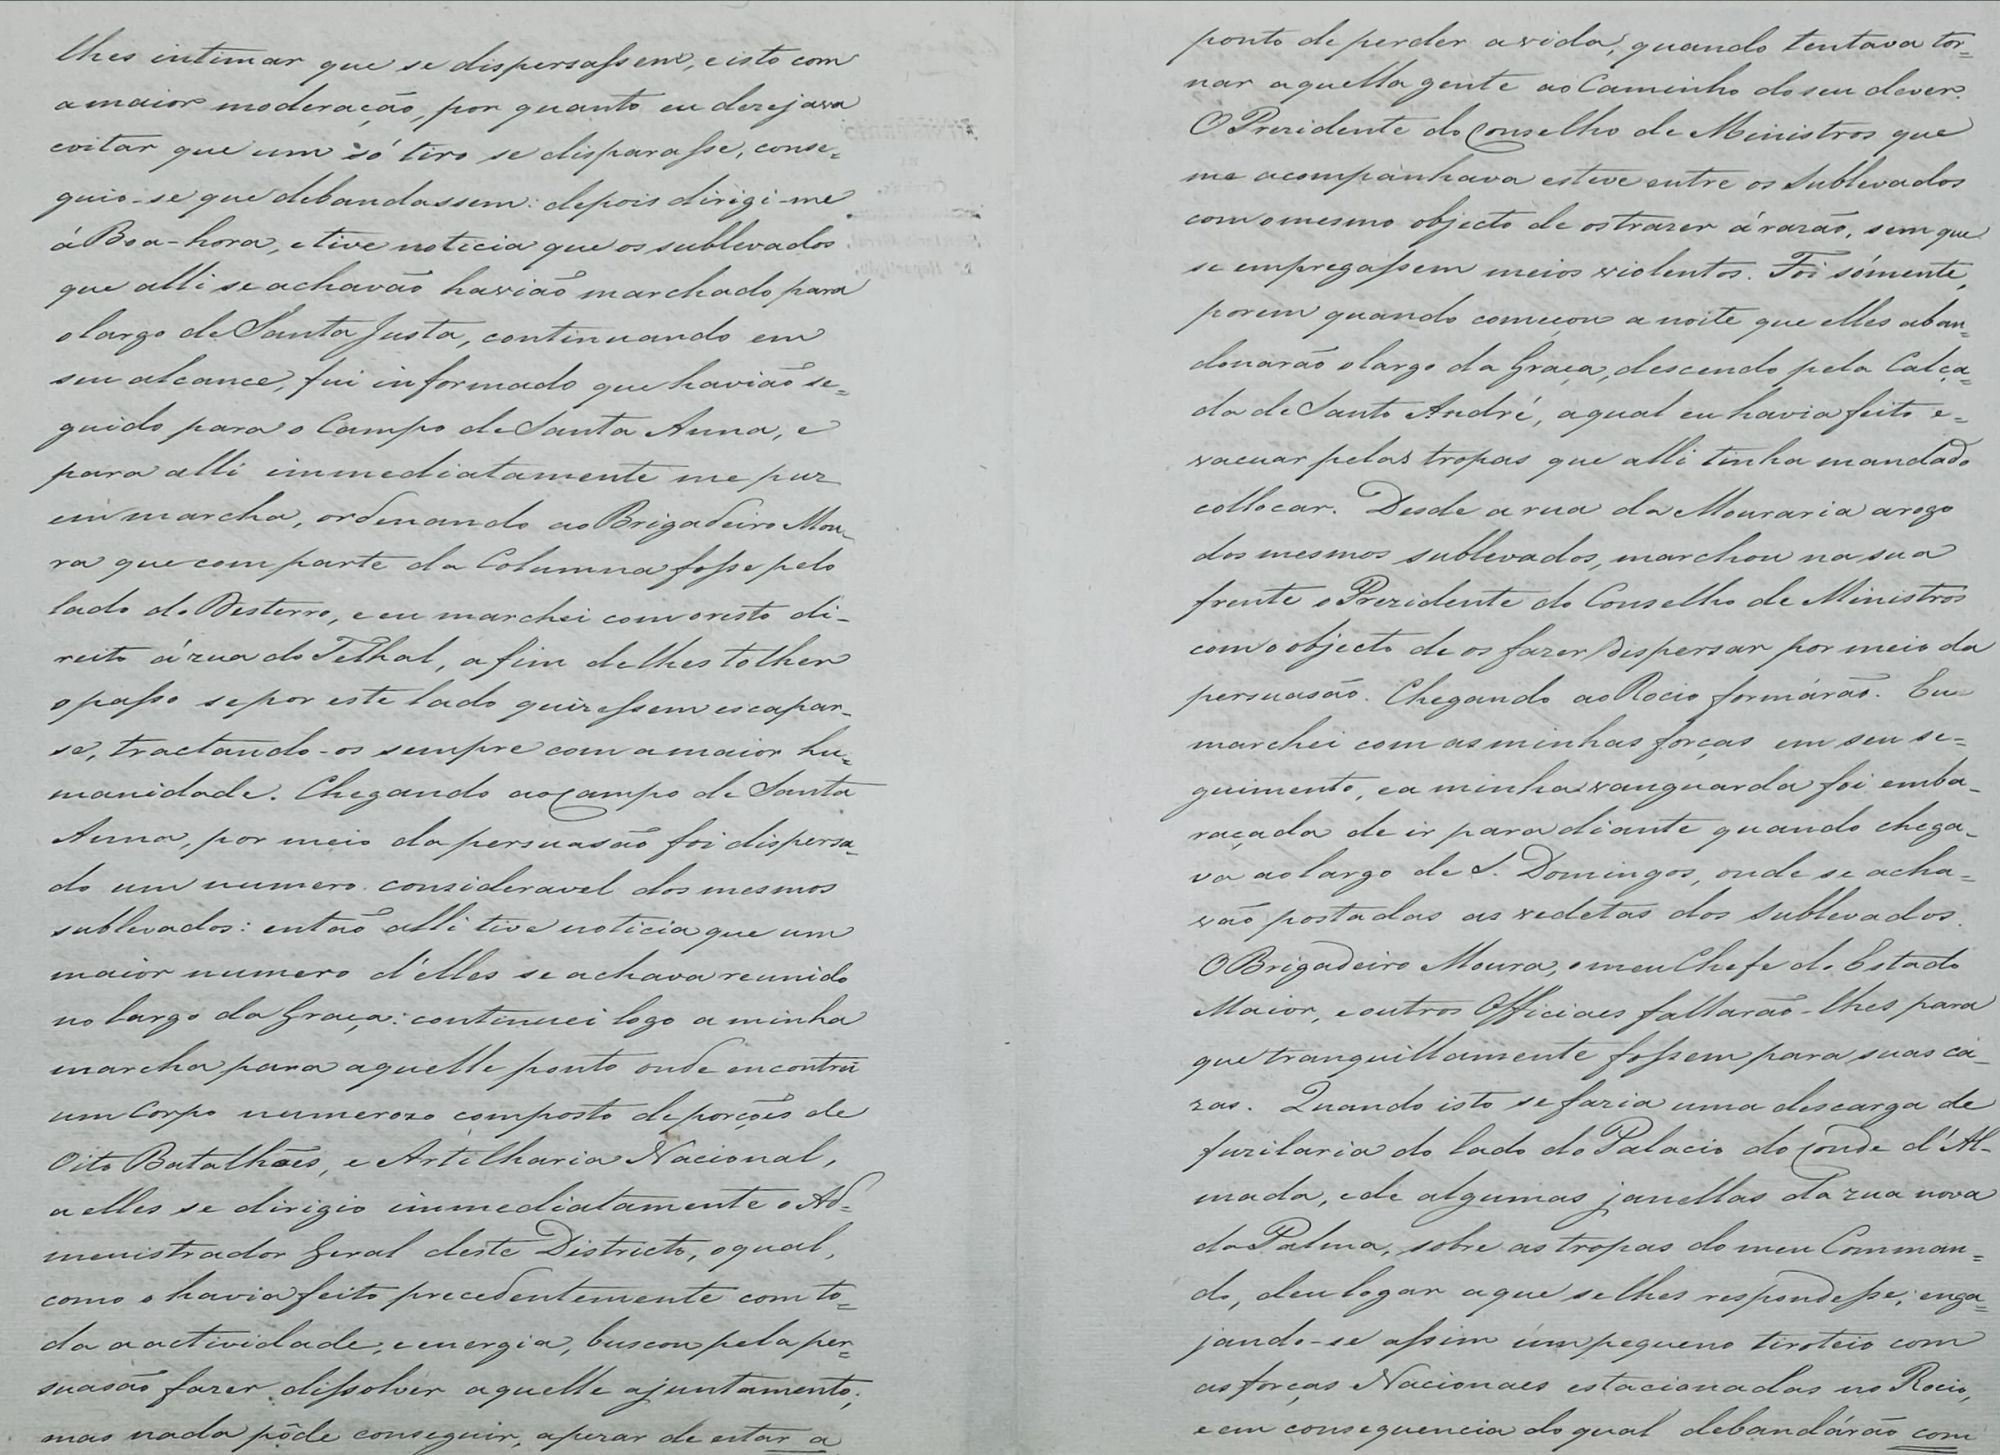 lhes intimar que se dispersassem, e isto com
a maior moderação, por quanto eu dezejava
evitar que um só tiro se disparasse, conse=
guio-se que debandassem: depois dirigi-me
á Boa-hora, e tive noticia que os sublevados
que alli se achavão havião marchado para
o largo de Santa Justa, continuando em
seu alcance, fui informado que havião se=
guido para o Campo de Santa Anna, e
para alli immediatamente me puz
em marcha, ordenando ao Brigadeiro Mou=
ra que com parte da Columna fosse pelo
lado do Desterro, e eu marchei com o resto di-
reito á rua do Telhal, a fim de lhes tolher
o passo se por este lado quizessem escapar-
se, tractando-os sempre com a maior hu=
manidade. Chegando ao Campo de Santa
Anna, por meio da persuasão foi dispersa=
do um numero consideravel dos mesmos
sublevados: então alli tive noticia que um
maior numero d'elles se achava reunido
no largo da Graça: continuei logo a minha
marcha para aquelle ponto onde encontrei
um Corpo numerozo composto de porções de
Oito Batalhões, e Artilharia Nacional,
a elles se dirigio immediatamente o Ad=
menistrador Geral deste Districto, o qual,
como o havia feito precedentemente com to=
da a actividade, e energia, buscou pela per=
suasão fazer dissolver aquelle ajuntamento;
mas nada pôde conseguir, apezar de estar a
ponto de perder a vida, quando tentava tor=
nar aquella gente ao Caminho do seu dever.
O Prezidente do Conselho de Ministros que
me acompanhava esteve entre os Sublevados
com o mesmo objecto de os trazer á razão, sem que
se empregassem meios violentos. Foi sómente,
porem quando começou a noite que elles aban=
donarão o largo da Graça, descendo pela Calça=
da de Santo André, a qual eu havia feito e=
vacuar pelas tropas que alli tinha mandado
collocar. Desde a rua da Mouraria a rogo
dos mesmos sublevados, marchou na sua
frente o Prezidente do Conselho de Ministros
com o objecto de os fazer dispersar por meio da
persuasão. Chegando ao Rocio formárão. Eu
marchei com as minhas forças em seu se=
guimento, e a minha vanguarda foi emba-
raçada de ir para diante quando chega-
va ao largo de S. Domingos, onde se acha=
vão postadas as vedetas dos Sublevados.
O Brigadeiro Moura, o meu Chefe do Estado
Maior, e outros Officiaes fallarão-lhes para
que tranquillamente fossem para suas ca-
zas. Quando isto se fazia uma descarga de
fuzilaria do lado do Palacio do Conde d'Al-
mada, e de algumas janellas da rua nova
da Palma, sobre as tropas do meu Comman=
do, deu logar a que se lhes respondesse; enga=
jando-se assim um pequeno tiroteio com
as forças Nacionaes estacionadas no Rocio,
e em consequencia do qual debandárão com